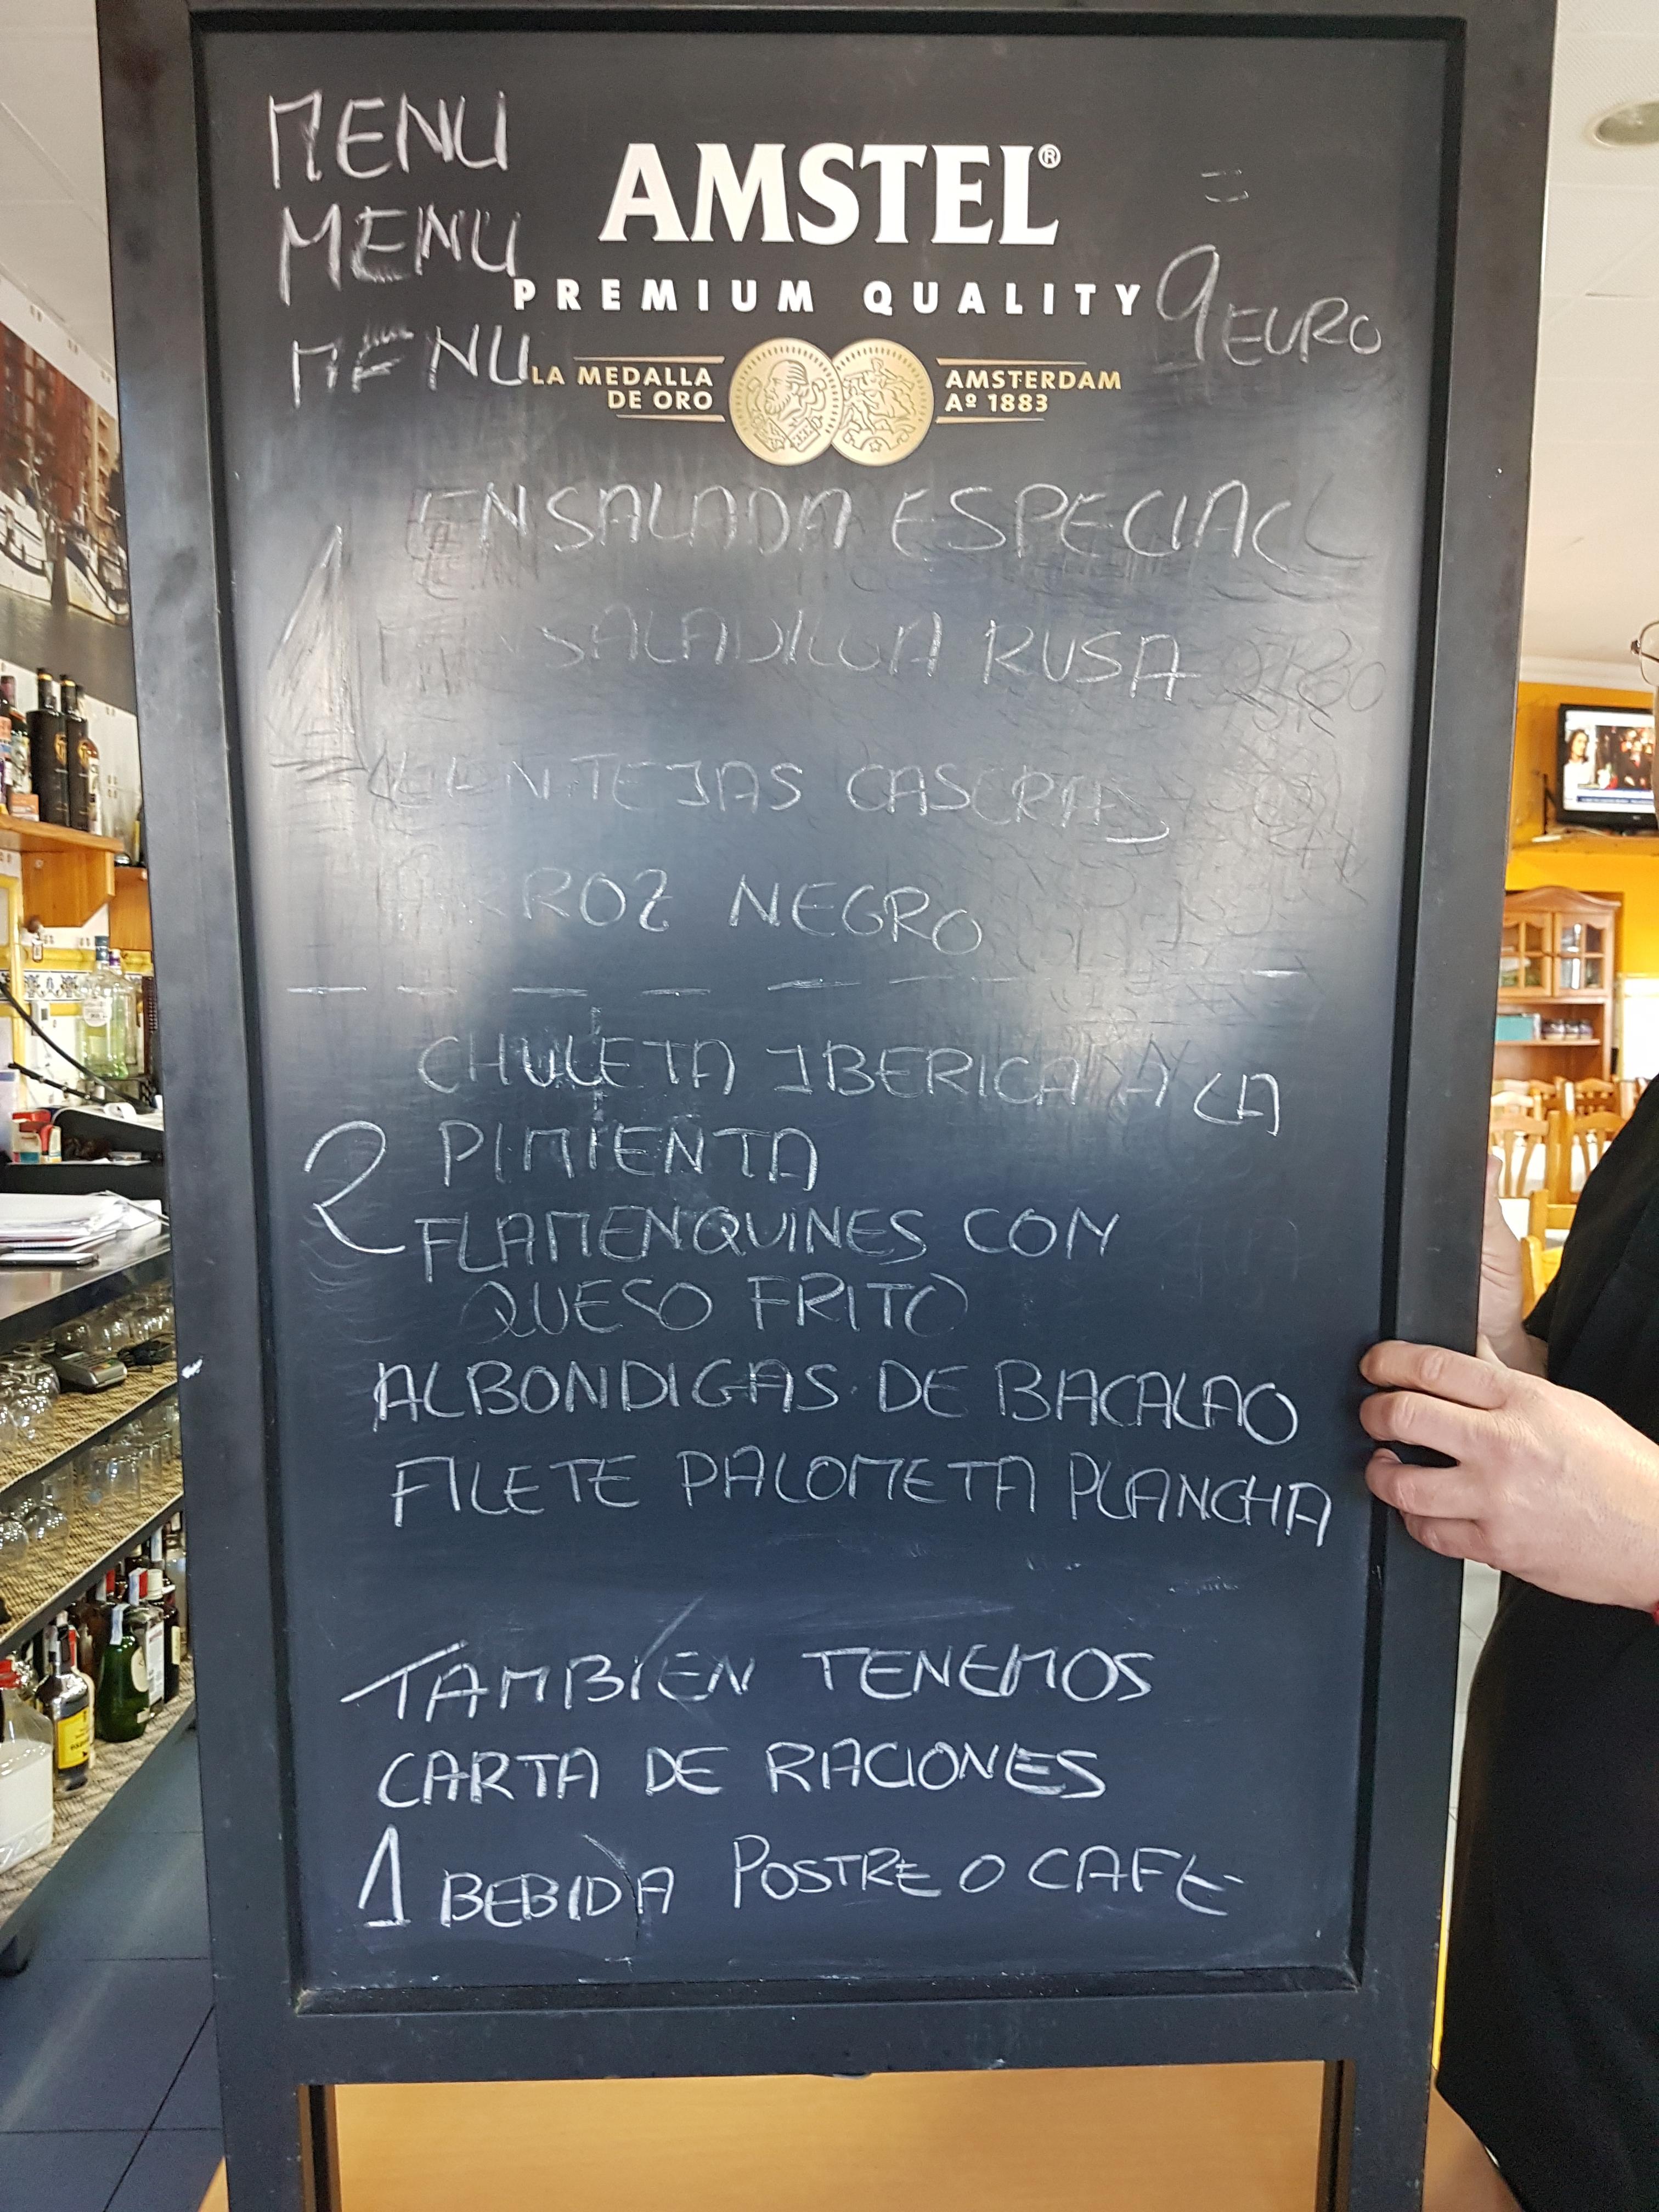 MENU
MENU
MENU
AMSTEL®
PREMIUM QUALITY
LA MEDALLA
DE ORO
AMSTERDAM
Aº 1883
9 EURO
1
ENSALADA ESPECIAL
ENSALADILLA RUSA
LENTEJAS CASERAS
ARROZ NEGRO
2
CHULETA IBERICA A LA
PIMIENTA
FLAMENQUINES CON
QUESO FRITO
ALBONDIGAS DE BACALAO
FILETE PALOMETA PLANCHA
TAMBIEN TENEMOS
CARTA DE RACIONES
1 BEBIDA POSTRE O CAFE